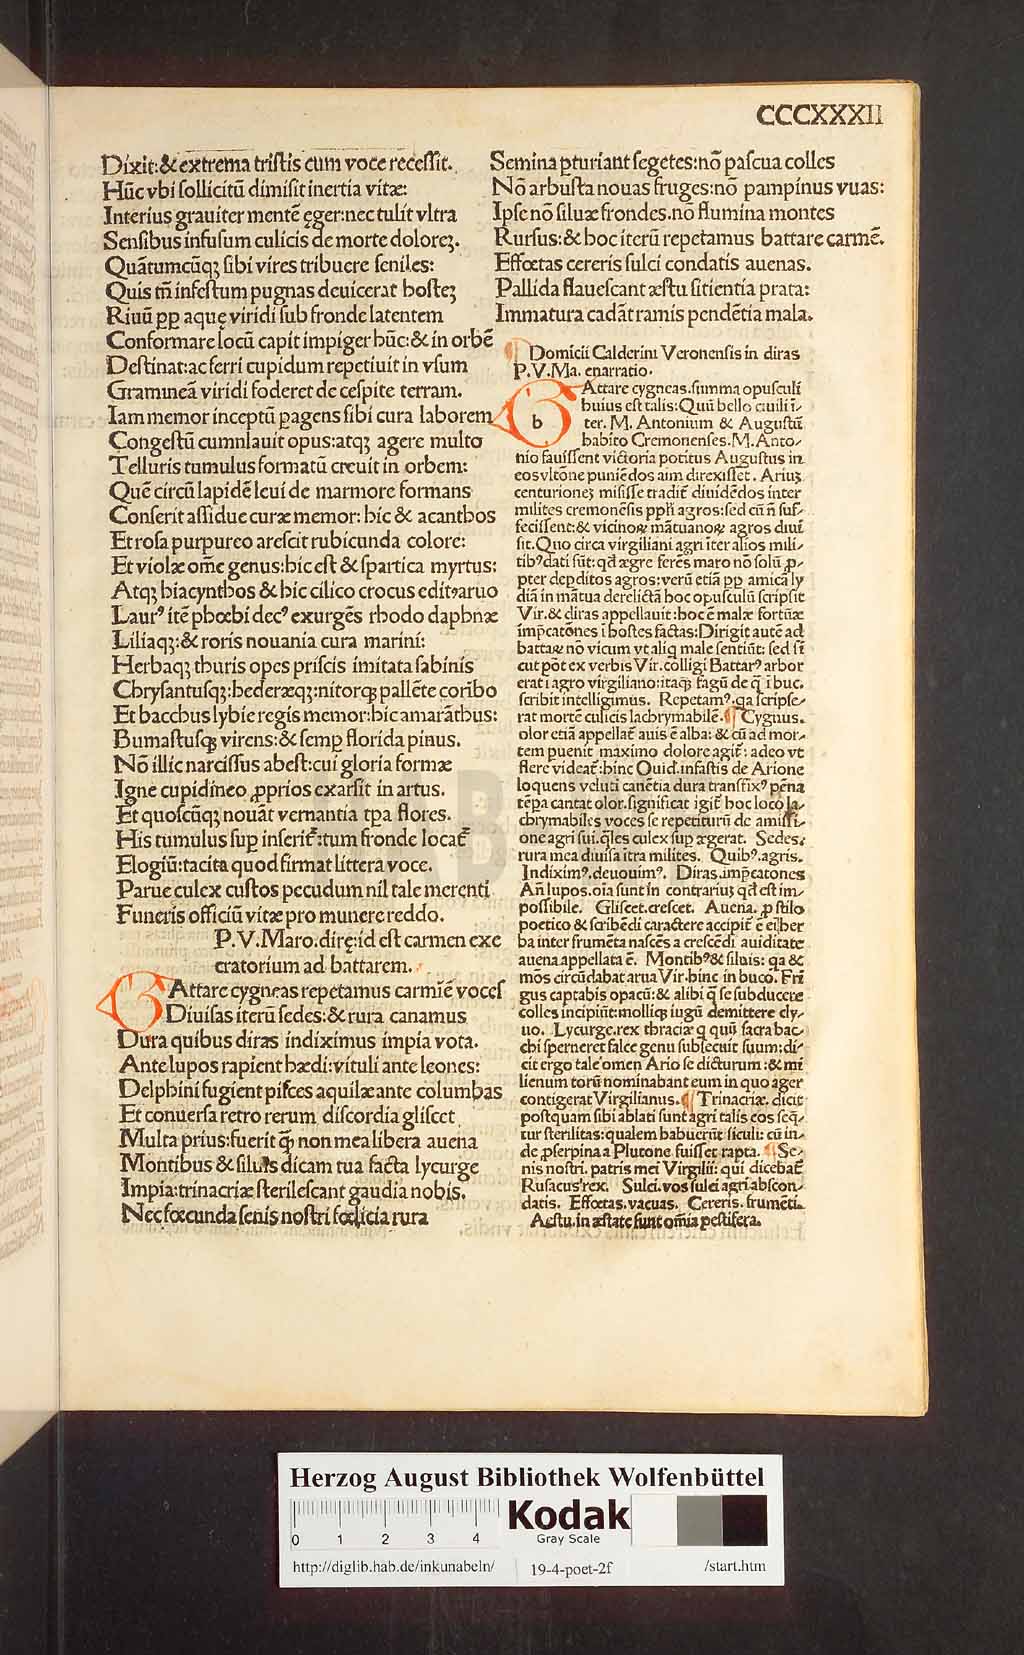 CCCXXXII
Dixit:& extrema tristis cum voce recessit.
Hūc vbi sollicitū dimisit inertia vitæ:
Interius grauiter mentē ęger:nec tulit vltra
Sensibus infusum culicis de morte dolorēꝫ.
Quātumcūqꝫ sibi vires tribuere seniles:
Quis tn̄ infestum pugnas deuicerat hosteꝫ
Riuū ꝓpꝑ aquę viridi sub fronde latentem
Conformare locū capit impiger hūc:& in orbē
Destinat:ac ferri cupidum repetiuit in vsum
Gramineā viridi foderet de cespite terram.
Iam memor inceptū ꝑagens sibi cura laborem
Congestū cumnlauit opus:atqꝫ agere multo
Telluris tumulus formatū creuit in orbem:
Quē circū lapidē leui de marmore formans
Conserit assidue curæ memor: hic & acanthos
Et rosa purpureo arescit rubicunda colore:
Et violæ om̄e genus:hic est & spartica myrtus:
Atqꝫ hiacynthos & hic cilico crocus editꝰaruo
Laurꝰ itē phœbi decꝰ exurgēs rhodo daphnæ
Liliaqꝫ:& roris nouania cura marini:
Herbaqꝫ thuris opes priscis imitata sabinis
Chrysantusqꝫ:hederæqꝫ:nitorqꝫ pallēte coribo
Et bacchus lybie regis memor:hic amarāthus:
Bumastusqꝫ virens:& semꝑ florida pinus.
Nō illic narcissus abest:cui gloria formæ
Igne cupidineo ꝓprios exarsit in artus.
Et quoscūqꝫ nouāt vernantia tꝑa flores.
His tumulus suꝑ inserit᷑:tum fronde locat᷑
Elogiū:tacita quod firmat littera voce.
Parue culex custos pecudum nil tale merenti
Funeris officiū vitæ pro munere reddo.
P.V.Maro.dirę:id est carmen exe
cratorium ad battarem.
b
Attare cygneas repetamus carmīe voces
Diuisas iterū sedes:& rura canamus
Dura quibus diras indiximus impia vota.
Ante lupos rapient hædi:vituli ante leones:
Delphini fugient pisces aquilæ ante columbas
Et conuersa retro rerum discordia gliscet
Multa prius:fuerit qꝫ̄ non mea libera auena
Montibus & siluis dicam tua facta lycurge
Impia:trinacriæ sterilescant gaudia nobis.
Nec fœcunda senis nostri fœlicia rura
Semina ꝑturiant segetes:nō pascua colles
Nō arbusta nouas fruges:nō pampinus vuas:
Ipse nō siluæ frondes.nō flumina montes
Rursus:& hoc iterū repetamus battare carmē.
Effœtas cereris sulci condatis auenas.
Pallida flauescant æstu sitientia prata:
Immatura cadāt ramis pendētia mala.
Domicii Calderini Veronensis in diras
P.V.Ma. enarratio.
b
Attare cygneas.summa opusculi
huius est talis:Quū bello ciuili ī-
ter. M. Antonium & Augustū
habito Cremonenses.M.Anto-
nio fauissent victoria potitus Augustus in
eos vltōne puniēdos aīm direxisset. Ariuꝫ
centurioneꝫ misisse tradit᷑ diuidēdos inter
milites cremonēsis ppl̄i agros:sed cū n̄ suf-
fecissent:& vicinoꝝ mātuanoꝝ agros diui
sit.Quo circa virgiliani agri īter alios mili-
tibꝰdati sūt:qd̄ ægre ferēs maro nō solū ꝓ-
pter deꝑditos agros:verū etiā ꝓp amicā ly
diā in mātua derelictā hoc opusculū scripsit
Vir.& diras appellauit:hoc ē malæ fortūæ
imp̄catōnes ī hostes factas:Dirigit autē ad
battaꝝ nō vicum vt aliq̄ male sentiūt: sed si
cut pōt ex verbis Vir.colligi Battarꝰ arbor
erat ī agro virgiliano:itaqꝫ fagū de q̄ ī buc.
scribit intelligimus. Repetamꝰ.qa scripse-
rat mortē culicis lachrymabilē. Cygnus.
olor etiā appellat᷑ auis ē alba: & cū ad mor-
tem ꝑuenit maximo dolore agit᷑: adeo vt
flere videat᷑:hinc Ouid.infastis de Arione
loquens veluti canētia dura transfixꝰ pēna
tēꝑa cantat olor.significat igit᷑ hoc loco la-
chrymabiles voces se repetiturū de amissi-
one agri sui.q̄les culex suꝑ ægerat. Sedes.
rura mea diuisa ītra milites. Quibꝰ.agris.
Indiximꝰ.deuouimꝰ. Diras.imp̄catones
An̄ lupos.oīa sunt in contrarius qd̄ est im-
possibile. Gliscet.crescet. Auena. ꝓ stilo
poetico & scribēdi caractere accipit᷑ ē ei̅ her
ba inter frumēta nascēs a crescēdi auiditate
auena appellata ē. Montibꝰ& siluis: qa &
mōs circūdabat arua Vir.hinc in buco. Fri
gus captabis opacū:& alibi q̄ se subducere
colles incipiūt:molliqꝫ iugū demittere cly-
uo. Lycurge.rex thraciæ q quū sacra bac-
chi sperneret falce genu subsecuit suum:di-
cit ergo tale omen Ario se dicturum :& mi
lienum torū nominabant eum in quo ager
contigerat Virgilianus. Trinacriæ. dicit
postquam sibi ablati sunt agri talis eos seq̄-
tur sterilitas:qualem habuerūt siculi: cū in-
de ꝓserpina a Plutone fuisset rapta. Se-
nis nostri. patris mei Virgilii: qui dicebat᷑
Rusacus rex. Sulci.vos sulci agri abscon-
datis. Effœtas.vacuas. Cereris.frumēti.
Aestu.in æstate sunt om̄ia pestifera.
Herzog August Bibliothek Wolfenbüttel
0 1 2 3 4
Kodak
Gray Scale
http://diglib.hab.de/inkunabeln/
19-4-poet-2f
/start.htm